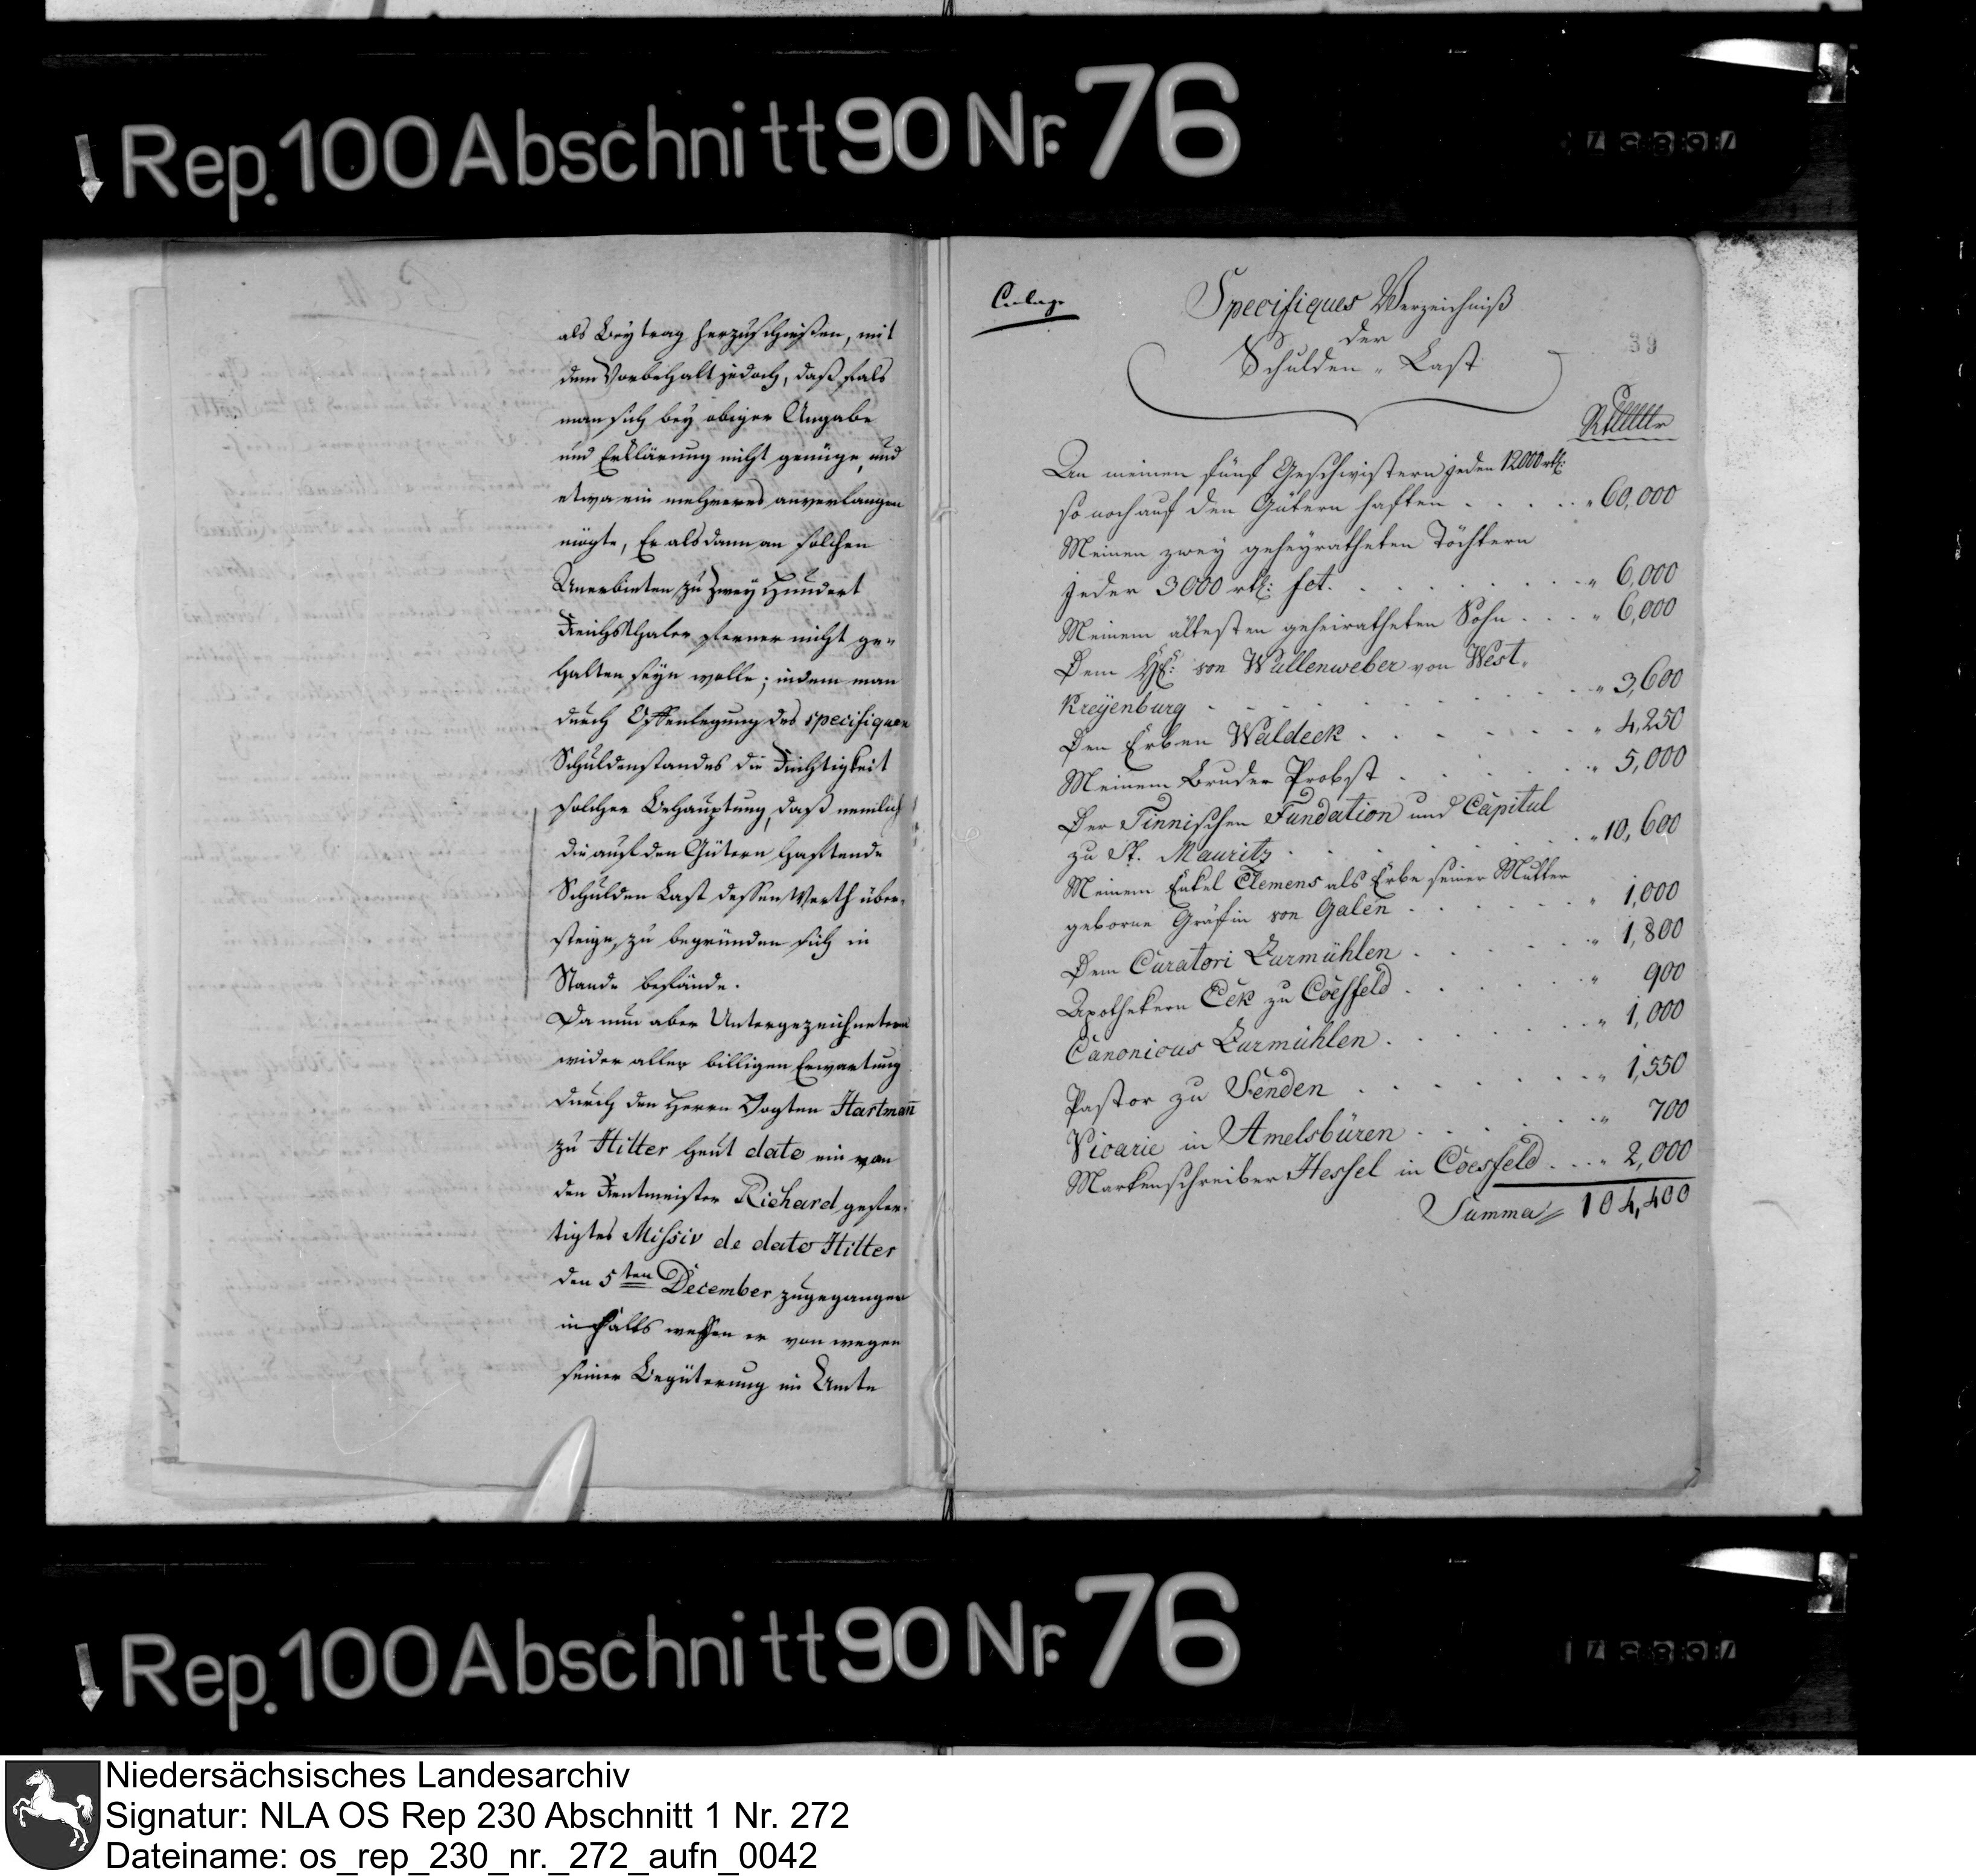 Rep. 100 Abschnitt 90 Nr. 76
als Beytrag herzuschießen, mit
dem Vorbehalt jedoch, daß fals
man sich bey obiger Angabe
und Erklärung nicht genüge, und
etwa ein mehreres anverlangen
mögte, Er alsdann an solchen
Anerbieten zu Zwey Hundert
Reichsthaler ferner nicht ge„
halten seyn wolle; indem man
durch Offenlegung des specifiquen
Schuldenstandes die Richtigkeit
solcher Behauptung, daß nemlich
die auf den Gütern haftende
Schulden Last dessen Werth über„
steige, zu begründen sich in
Stande befände.
Da nun aber Untergezeichnetem
wider aller billigen Erwartung
durch den Herrn Vogten Hartmañ
zu Hilter heut dato ein von
den Rentmeister Richard gefer„
tigtes Missiv de dato Hilter
den 5ten December zugegangen
inhalts wessen er von wegen
seiner Begüterung im Amte
Anlage
Specifiques Verzeichniß
der
Schulden„Last
39
An meinen fünf Geschwistern jeden 12000 rtl:
so noch auf den Gütern haften . . . . . „ 60,000
Meinen zwey geheyratheten Töchtern
jeder 3000 rtl: fct. . . . . . . . „ 6,000
Meinem ältesten geheiratheten Sohn . . . „ 6,000
Dem H: von Wullenweber von West„
Kreyenburg . . . . . . . . „ 3,600
Den Erben Waldeck . . . . . . „ 4,250
Meinem Bruder Probst . . . . . „ 5,000
Der Tinnischen Fundation und Capitul
zu St. Mauritz . . . . . . . „ 10,600
Meinem Enkel Clemens als Erbe seiner Mutter
geborne Gräfin von Galen . . . . . „ 1,000
Dem Curatori Zurmühlen . . . . . „ 1,800
Apothekern Eck zu Coesfeld . . . . . „ 900
Canonicus Zurmühlen . . . . . „ 1,000
Pastor zu Senden . . . . . . „ 1,550
Vicarie in Amelsbüren . . . . . „ 700
Markenschreiber Hessel in Coesfeld . . . „ 2,000
Summa 104,400
Rep. 100 Abschnitt 90 Nr. 76
Niedersächsisches Landesarchiv
Signatur: NLA OS Rep 230 Abschnitt 1 Nr. 272
Dateiname: os_rep_230_nr._272_aufn_0042